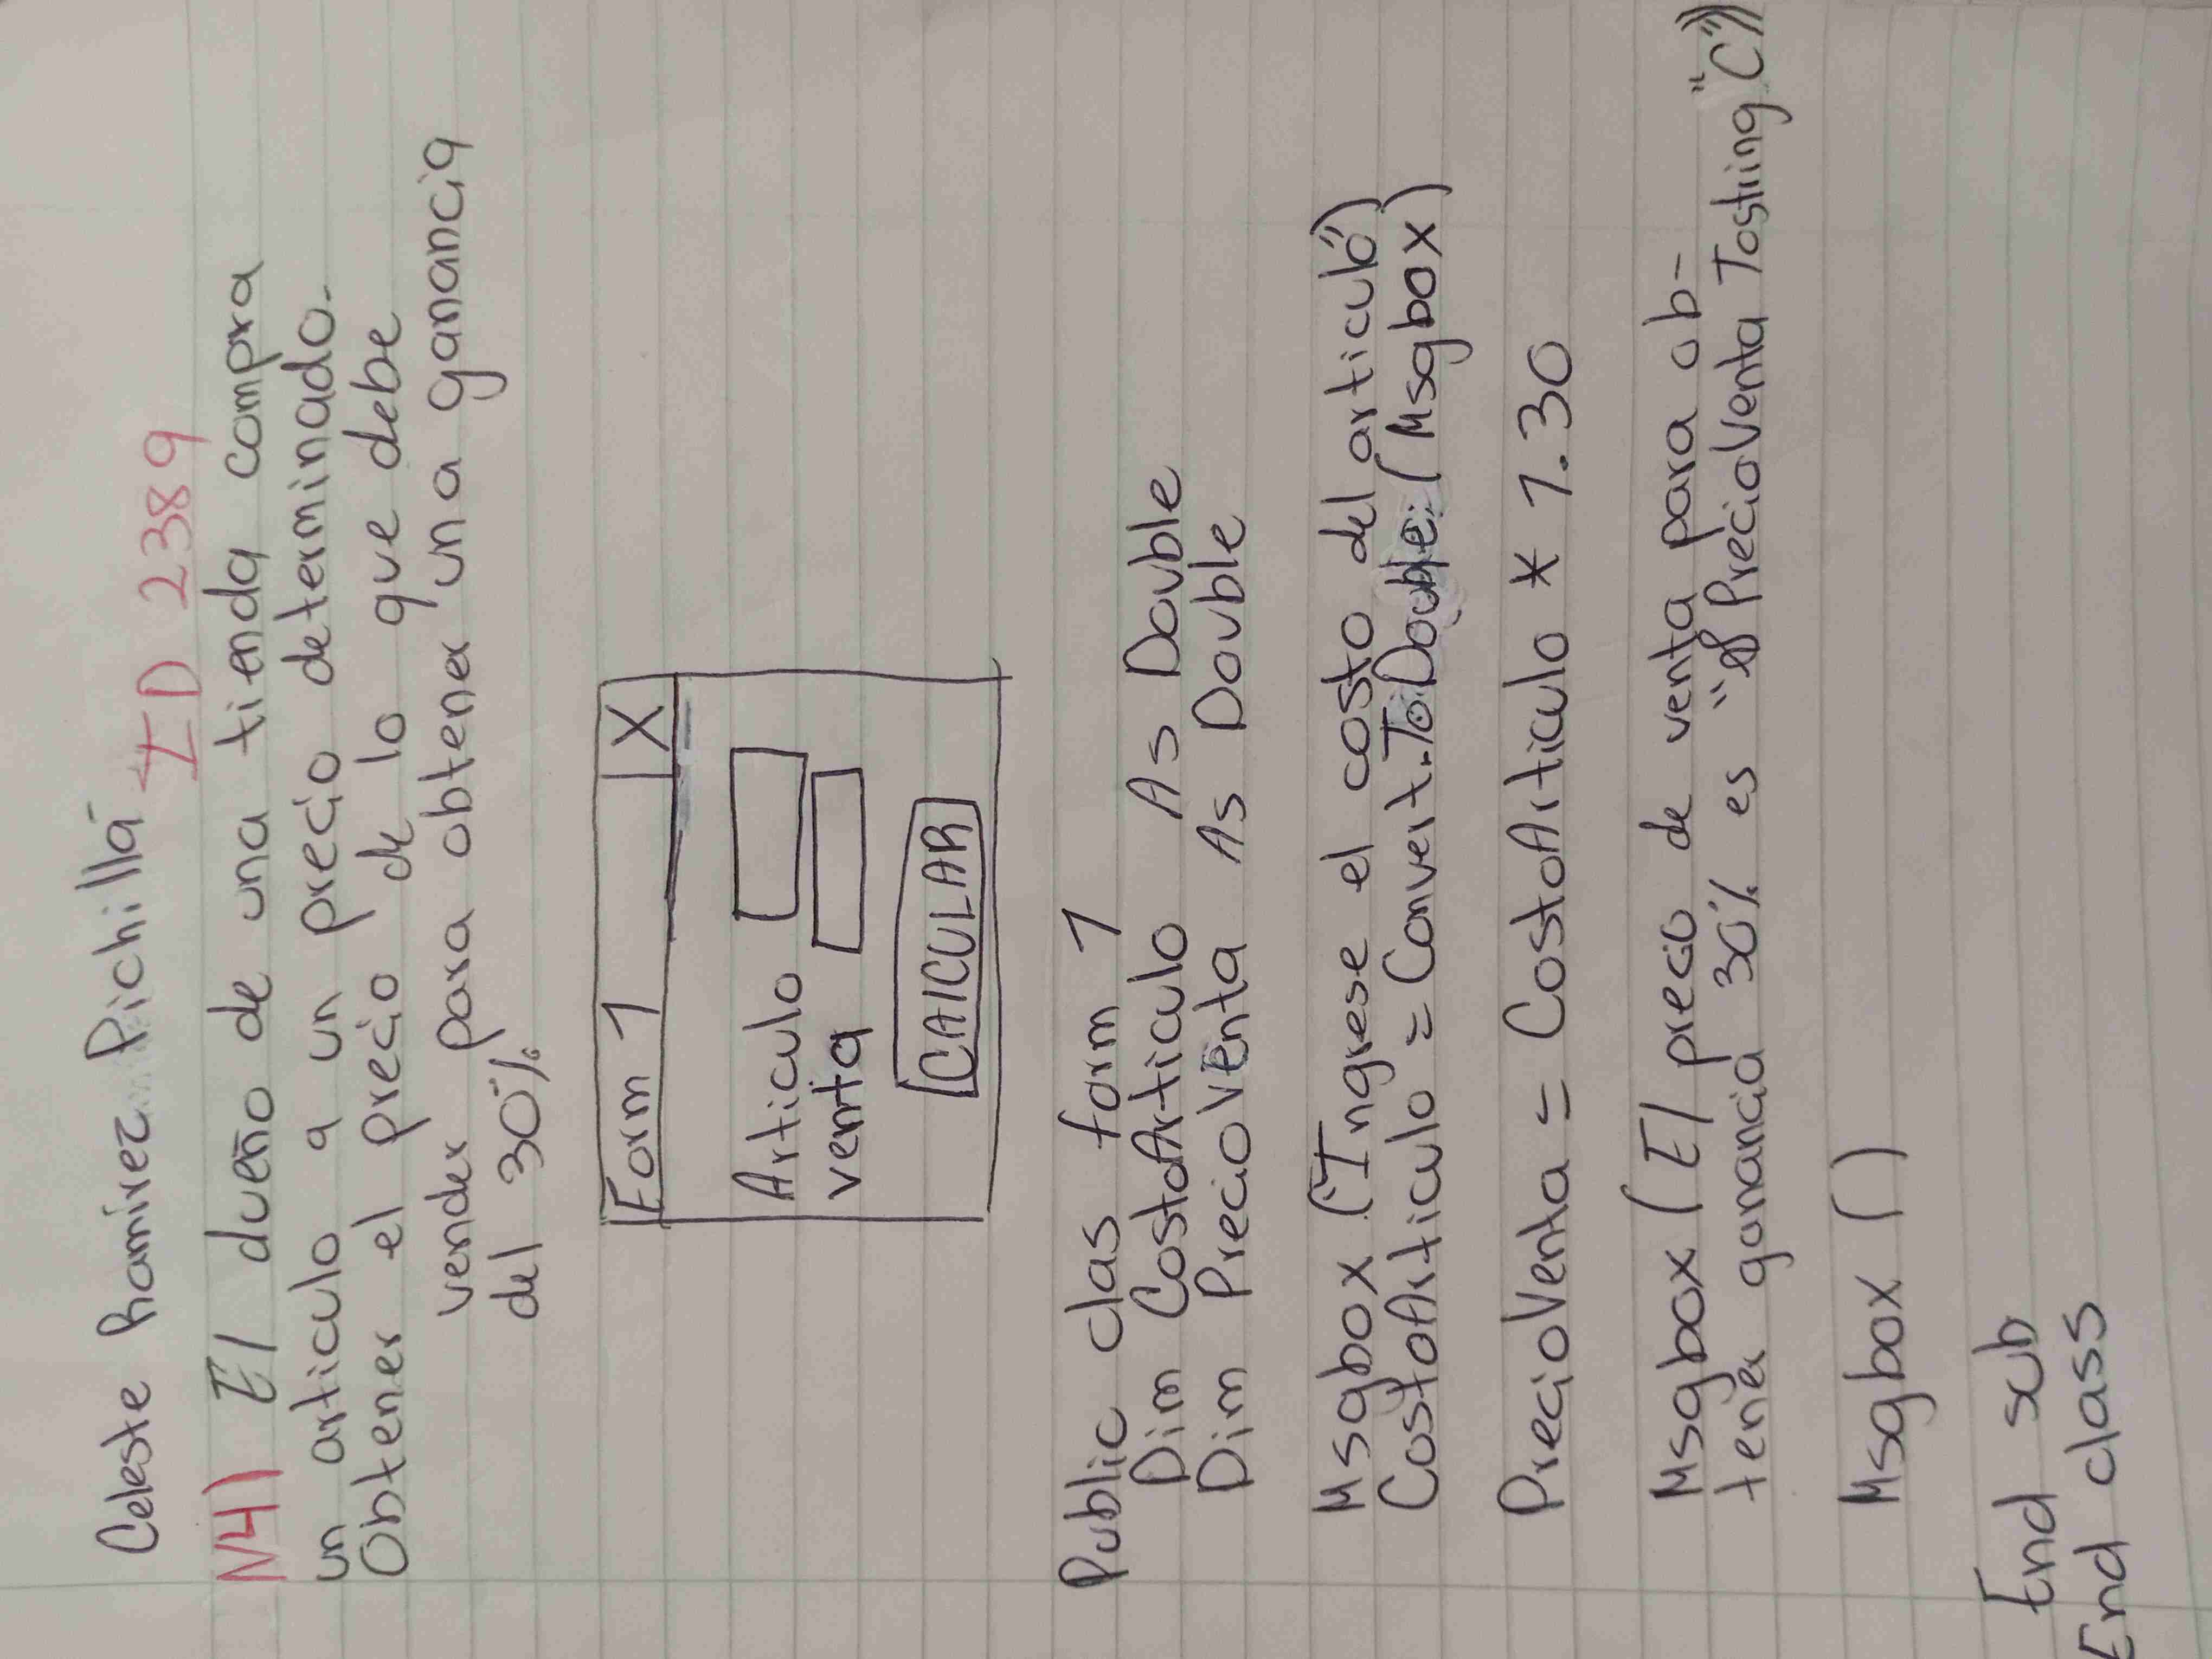 Celeste Ramírez Pichillá ID 2389
N4) El dueño de una tienda compra
un articulo a un precio determinado.
Obtener el precio de lo que debe
vender para obtener una ganancia
del 30%
Form 1 X
Articulo
venta
CAlCULAR
Public clas form 1
Dim CostoArticulo As Double
Dim PrecioVenta As Double
Msgbox ("Ingrese el costo del articulo")
CostoArticulo = Convert.ToDouble (Msgbox)
PrecioVenta = CostoArticulo * 1.30
Msgbox (El precio de venta para ob-
tener ganancia 30% es "& PrecioVenta Tostring "C"))
Msgbox ()
End sub
End class